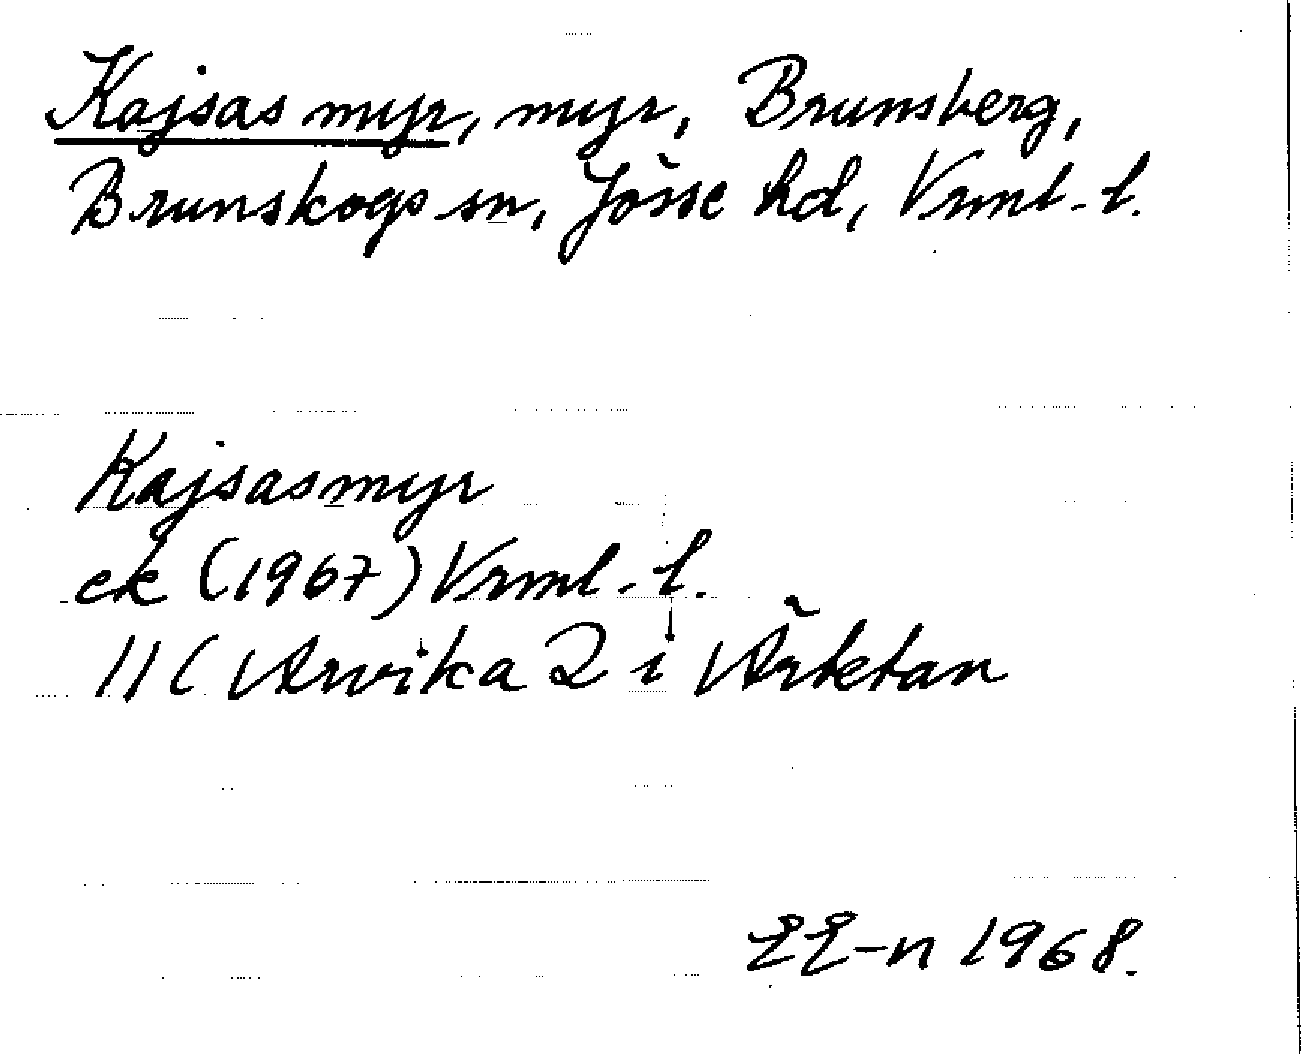 Kajsas myr, myr, Brunsberg,
Brunskogs sn, Jösse hd, Vrml. l.
Kajsasmyr
ek (1967) Vrml. l.
11C Arvika 2 i
1968.